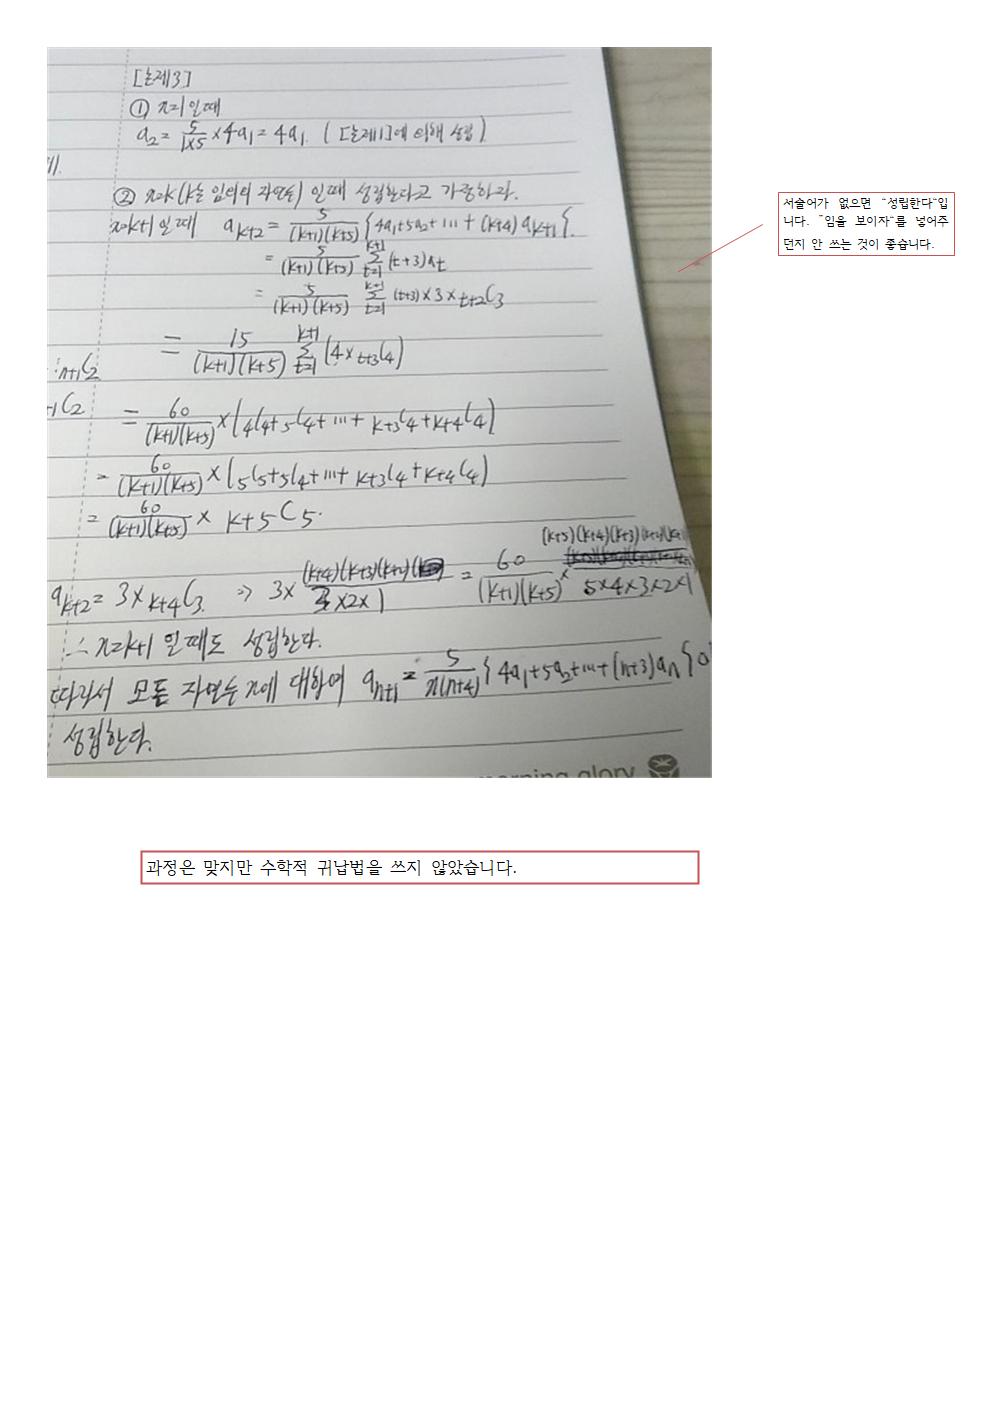 [논제3]
① n=1일때
a₂ = 5/(1×5) × 4a₁ = 4a₁. ([논제1]에 의해 성립)
② n=k (k는 임의의 자연수) 일때 성립한다고 가정하자.
n=k+1일때 a_{k+2} = 5/((k+1)(k+5)) {4a₁+5a₂+⋯+(k+4)a_{k+1}}.
= 5/((k+1)(k+5)) Σ_{t=1}^{k+1} (t+3)a_t
= 5/((k+1)(k+5)) Σ_{t=1}^{k+1} (t+3)×3×_{t+2}C₃
= 15/((k+1)(k+5)) Σ_{t=1}^{k+1} (4×_{t+3}C₄)
_{n+1}C₂
+1C₂
= 60/((k+1)(k+5)) × (₄C₄+₅C₄+⋯+_{k+3}C₄+_{k+4}C₄)
= 60/((k+1)(k+5)) × (₅C₅+₅C₄+⋯+_{k+3}C₄+_{k+4}C₄)
= 60/((k+1)(k+5)) × _{k+5}C₅.
a_{k+2} = 3×_{k+4}C₃. ⇒ 3× (k+4)(k+3)(k+2)/(3×2×1) = 60/((k+1)(k+5)) × (k+5)(k+4)(k+3)(k+2)(k+1)/(5×4×3×2×1)
∴ n=k+1 일때도 성립한다.
따라서 모든 자연수 n에 대하여 a_{n+1} = 5/(n(n+4)) {4a₁+5a₂+⋯+(n+3)a_n}이
성립한다.
morning glory
서술어가 없으면 "성립한다"입
니다. "임을 보이자"를 넣어주
던지 안 쓰는 것이 좋습니다.
과정은 맞지만 수학적 귀납법을 쓰지 않았습니다.